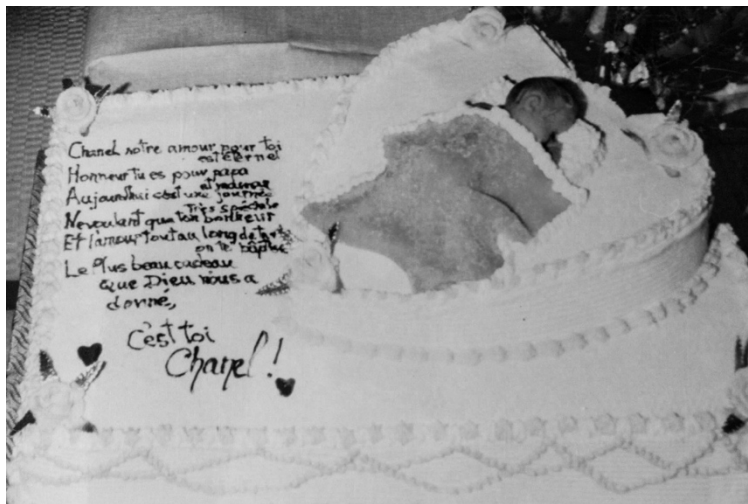 Chanel notre amour pour toi
est éternel
Honneur tu es pour papa
et maman
Aujourd'hui c'est une journée
Très spéciale
Ne voulant que ton bonheur
Et l'amour tout au long de ta
on te baptise
Le Plus beau cadeau
que Dieu nous a
donné,
C'est toi
Chanel!